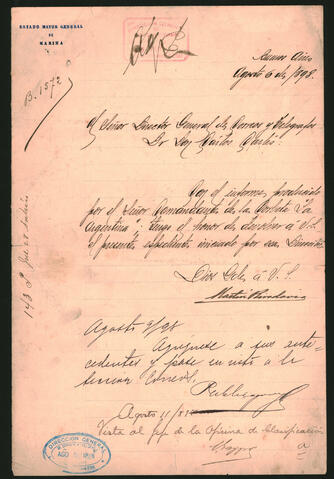 ESTADO MAYOR GENERAL
DE
MARINA
B. 1572
Buenos Aires
Agosto 6 de 1898.
Al Señor Director General de Correos y Telégrafos
Dr Don Carlos Carlés
Con el informe producido
por el Señor Comandante de la Corbeta "La
Argentina", tengo el honor de devolver á V.S.
el presente espediente iniciado por esa Dirección
Dios Gde á V.S.
Martin Rivadavia
Agosto 9/98
Agréguese a sus ante-
cedentes y pase en vista a la
Agosto 11/98
Vista al Jefe de la Oficina de Clasificación
a
DIRECCION GENERAL
AGO